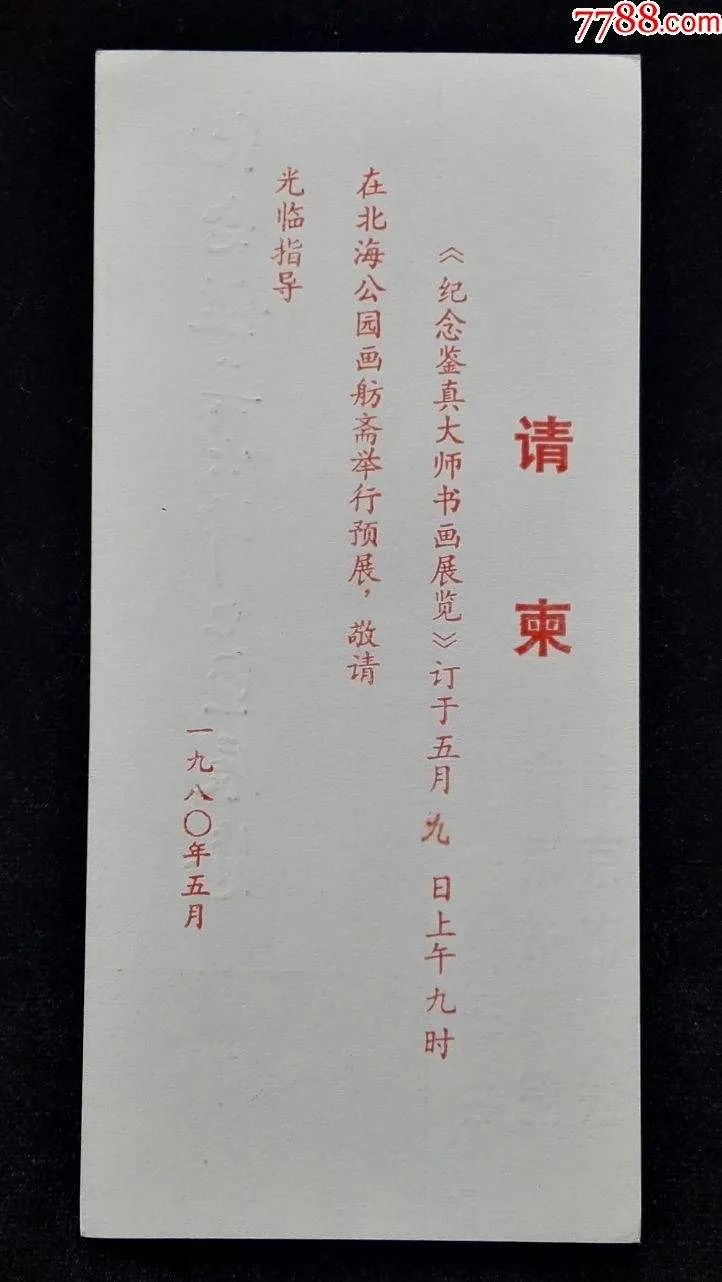 7788.com
请柬
《纪念鉴真大师书画展览》订于五月九日上午九时
在北海公园画舫斋举行预展，敬请
光临指导
一九八〇年五月